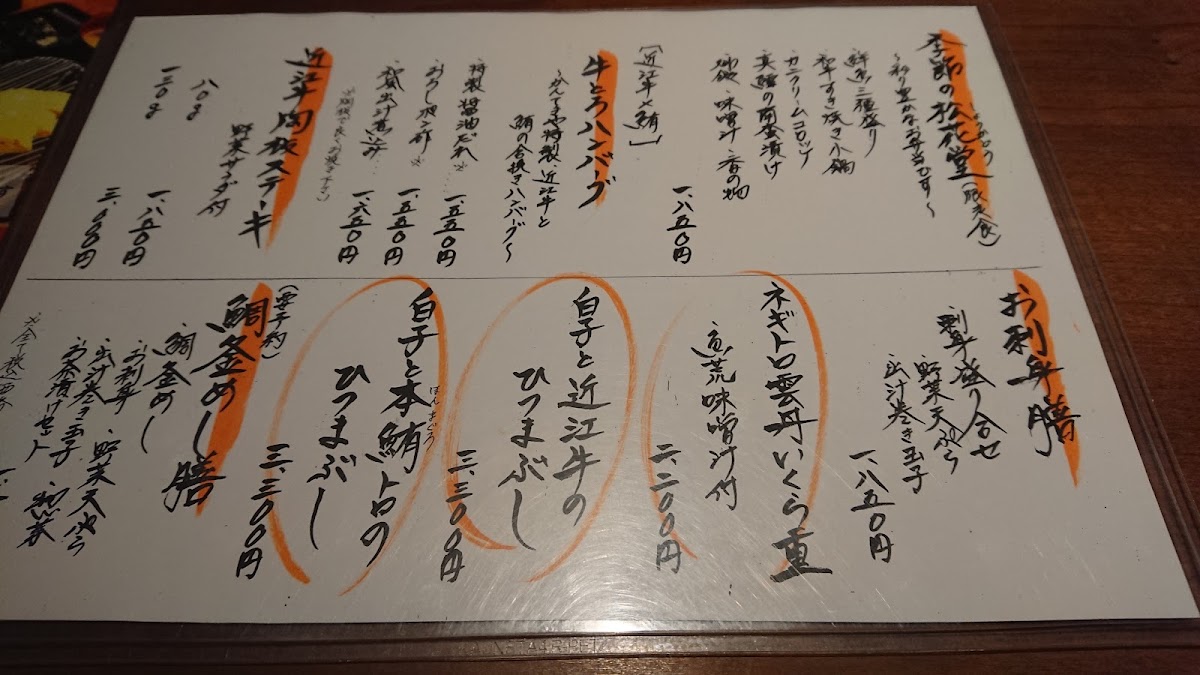 季節の松花堂(限定食)
しょうかどう
〜彩り豊かなお弁当です〜
鮮魚三種盛り
和牛すき焼き小鍋
カニクリームコロッケ
真鱈の南蛮漬け
御飯・味噌汁・香の物
一、八五〇円
[近江牛×鮪]
牛とろハンバーグ
近江牛と
鮪の合挽きハンバーグ〜
特製醤油だれ※
一、五五〇円
おろしポン酢※
一、五五〇円
一、六五〇円
近江牛陶板ステーキ
野菜サラダ付
八〇g
一、八五〇円
一三〇g
三、〇〇〇円
お刺身膳
刺身盛り合せ
野菜天ぷら
出汁巻き玉子
一、八五〇円
ネギトロ雲丹いくら重
魚荒味噌汁付
二、二〇〇円
白子と近江牛の
ひつまぶし
三、三〇〇円
白子と本鮪トロの
ほんまぐろ
ひつまぶし
三、三〇〇円
(要予約)
鯛釜めし膳
鯛釜めし
お刺身・野菜天ぷら
出汁巻き玉子
お茶漬けセット